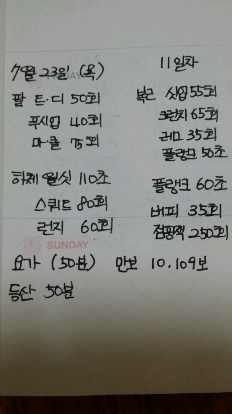 7월 23일 (목) 11일차
팔 트·디 50회
푸시업 40회
마·클 75회
복근 싯업 55회
크런치 65회
레그 35회
플랭크 50초
하체 월싯 110초
스쿼트 80회
런지 60회
플랭크 60초
버피 35회
점핑잭 250회
SUNDAY
요가 (50분) 만보 10,109보
등산 50분